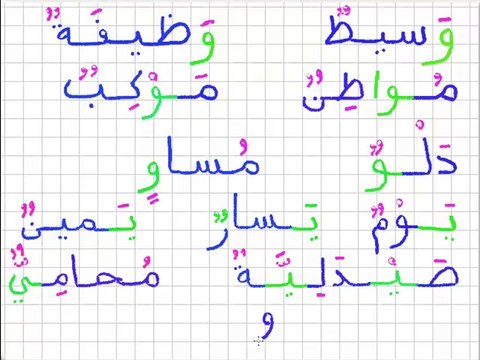 وَسيطٌ وَظيفَةٌ
مُواطِنٌ مَوْكِبٌ
دَلْوٌ مُساوٍ
يَوْمٌ يَسارٌ يَمينٌ
صَيْدَلِيَّةٌ مُحامِيٌّ
و